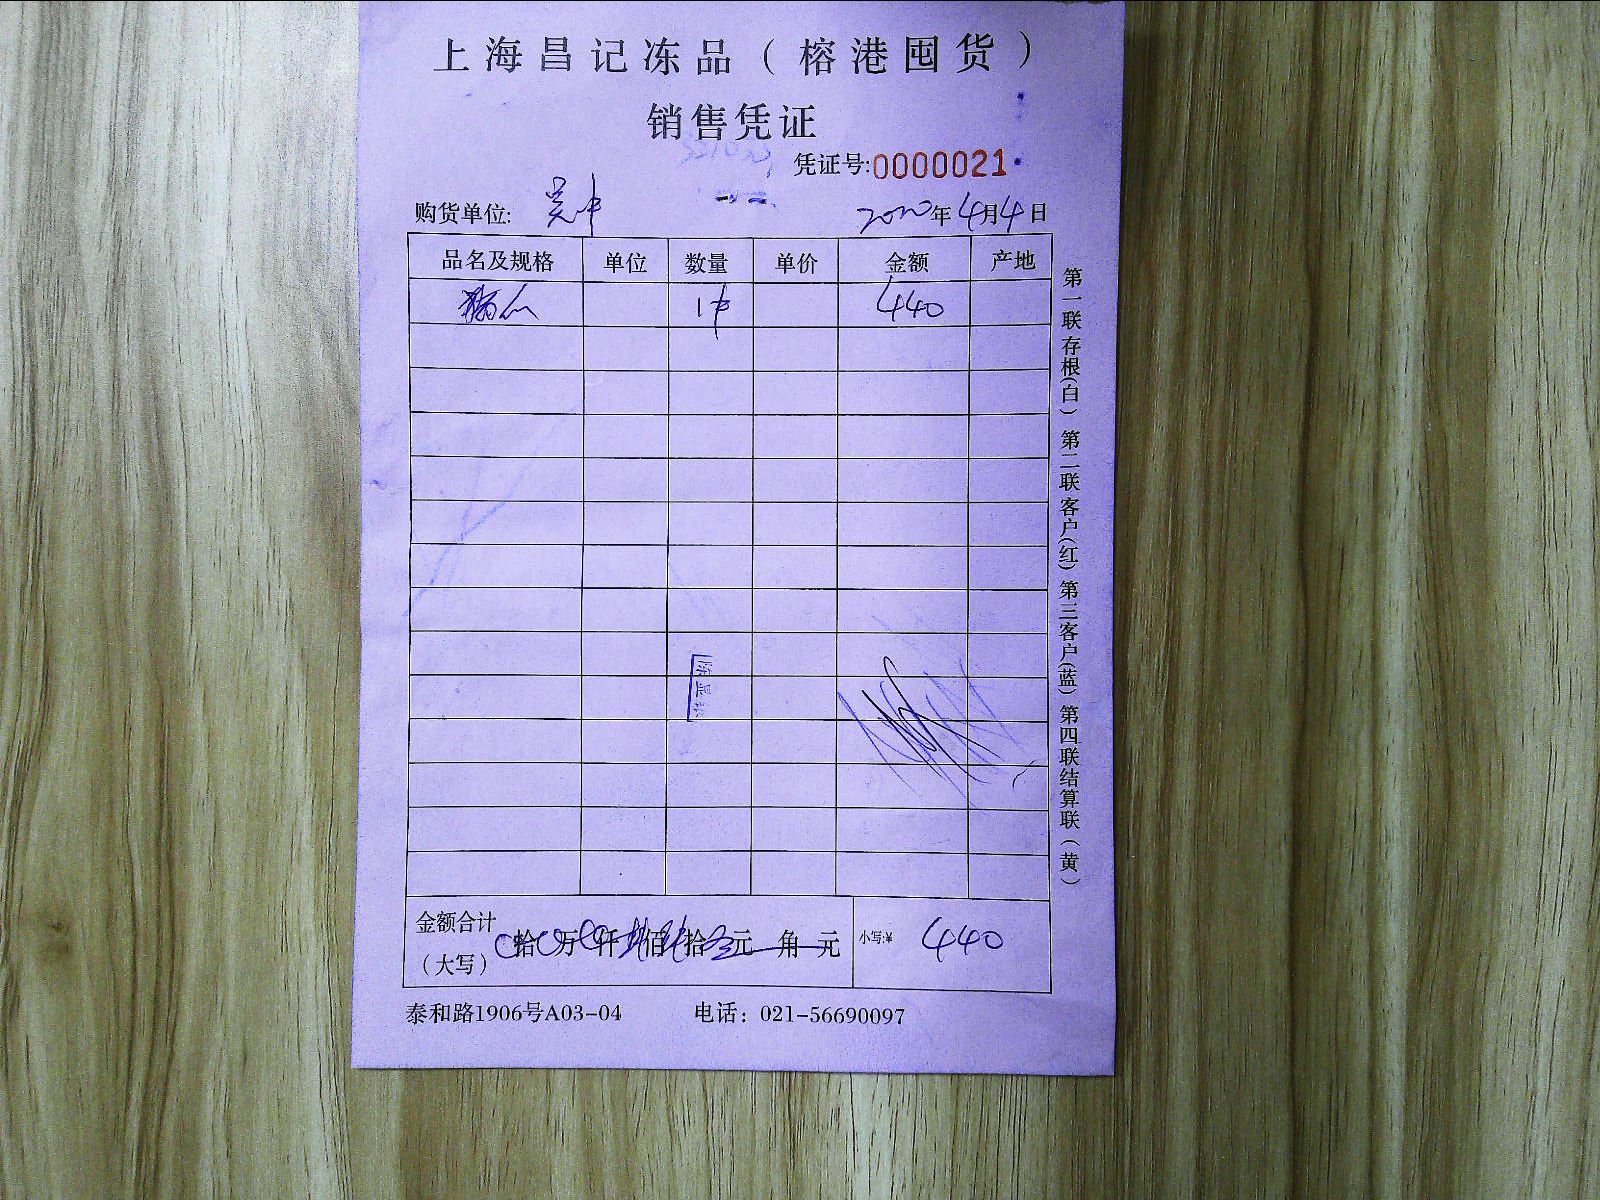 上海昌记冻品（榕港囤货）
销售凭证
凭证号:0000021
购货单位: 吴中
2020年4月4日
品名及规格 单位 数量 单价 金额 产地
1件 440
金额合计
（大写） 拾 万 仟 佰 拾 元 角 元 小写:¥ 440
泰和路1906号A03-04 电话：021-56690097
第一联存根（白） 第二联客户（红） 第三客户（蓝） 第四联结算联（黄）